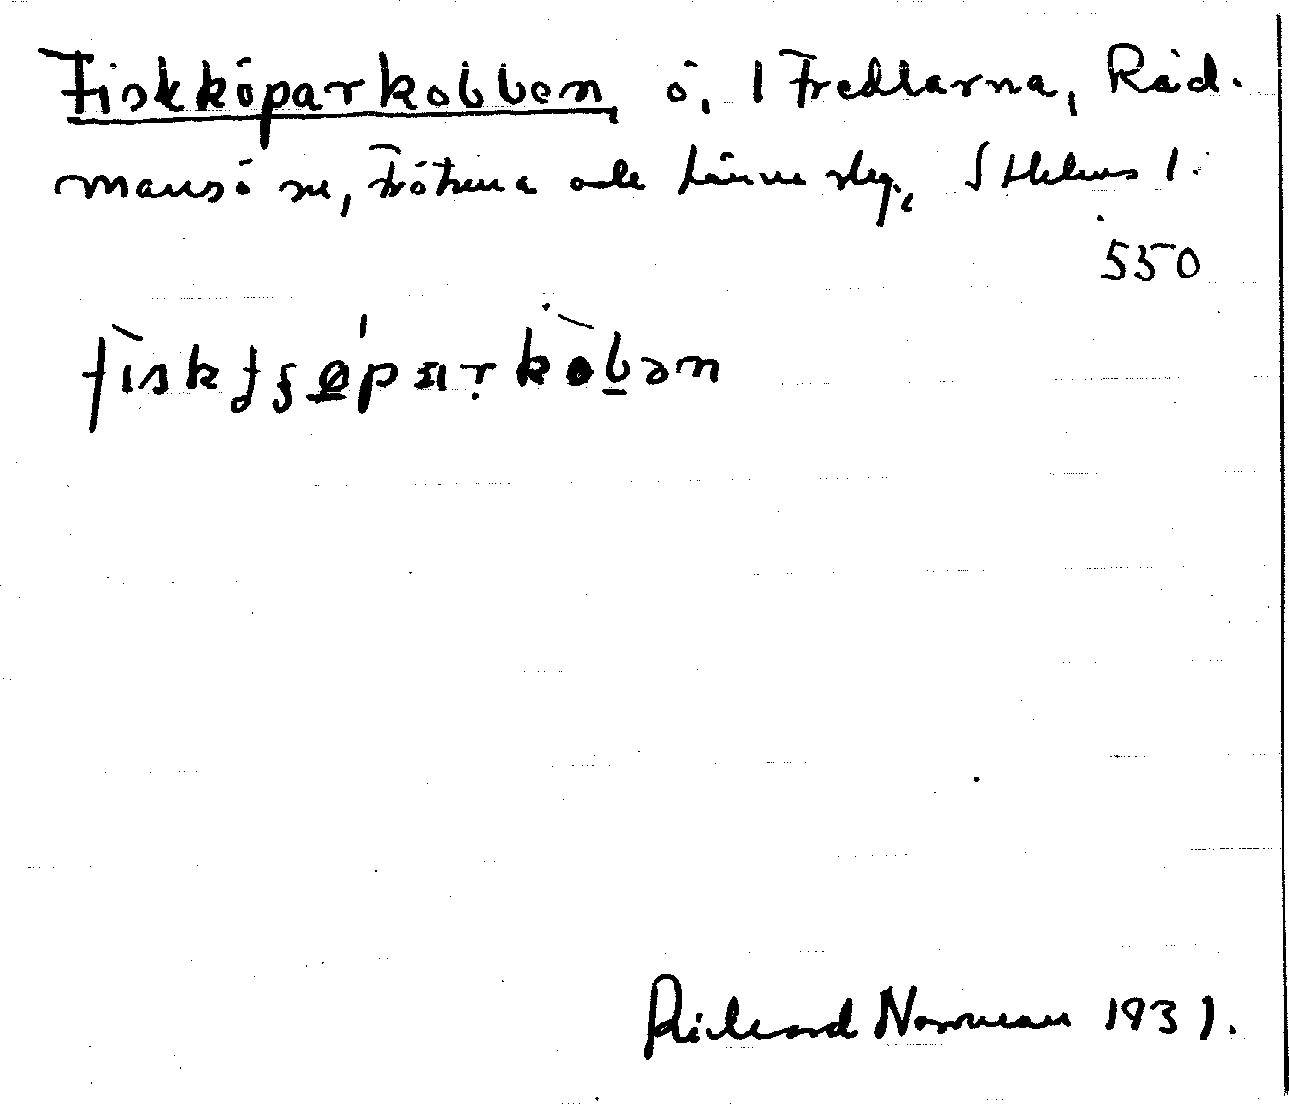 Fiskköparkobben, ö, i Fredlarna, Råd-
mansö sn, Frötuna och Länna skg., Sthlms l.
550
Richard Norman 1931.